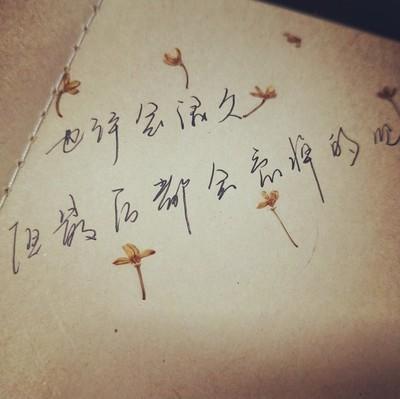 也许会很久
但最后都会忘掉的吧